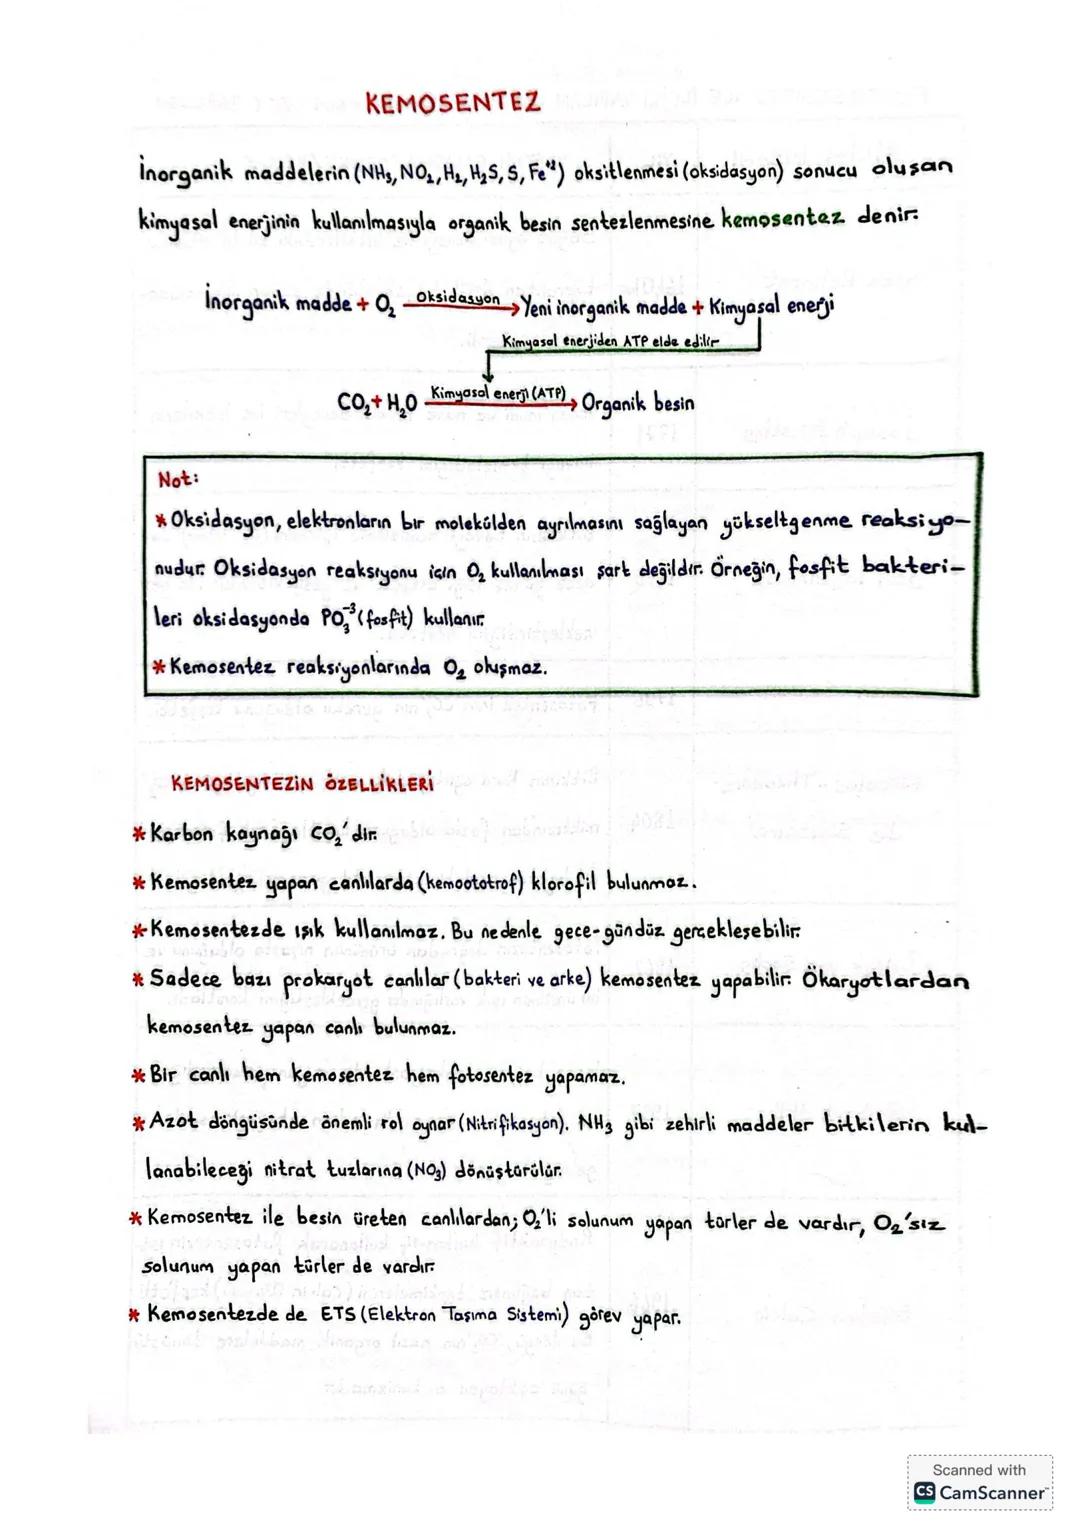 KEMOSENTEZ
İnorganik maddelerin (NH₃, NO₂, H₂, H₂S, S, Fe⁺²) oksitlenmesi (oksidasyon) sonucu oluşan
kimyasal enerjinin kullanılmasıyla organik besin sentezlenmesine kemosentez denir.
İnorganik madde + O₂ Oksidasyon → Yeni inorganik madde + Kimyasal enerji
Kimyasal enerjiden ATP elde edilir
CO₂ + H₂O Kimyasal enerji (ATP) → Organik besin
Not:
* Oksidasyon, elektronların bir molekülden ayrılmasını sağlayan yükseltgenme reaksiyo-
nudur. Oksidasyon reaksiyonu için O₂ kullanılması şart değildir. Örneğin, fosfit bakteri-
leri oksidasyonda PO₃⁻³ (fosfit) kullanır.
* Kemosentez reaksiyonlarında O₂ oluşmaz.
KEMOSENTEZİN ÖZELLİKLERİ
* Karbon kaynağı CO₂'dir.
* Kemosentez yapan canlılarda (kemoototrof) klorofil bulunmaz.
* Kemosentezde ışık kullanılmaz. Bu nedenle gece-gündüz gerçekleşebilir.
* Sadece bazı prokaryot canlılar (bakteri ve arke) kemosentez yapabilir. Ökaryotlardan
kemosentez yapan canlı bulunmaz.
* Bir canlı hem kemosentez hem fotosentez yapamaz.
* Azot döngüsünde önemli rol oynar (Nitrifikasyon). NH₃ gibi zehirli maddeler bitkilerin kul-
lanabileceği nitrat tuzlarına (NO₃) dönüştürülür.
* Kemosentez ile besin üreten canlılardan; O₂'li solunum yapan türler de vardır, O₂'siz
solunum yapan türler de vardır.
* Kemosentezde de ETS (Elektron Taşıma Sistemi) görev yapar.
Scanned with
CS CamScanner